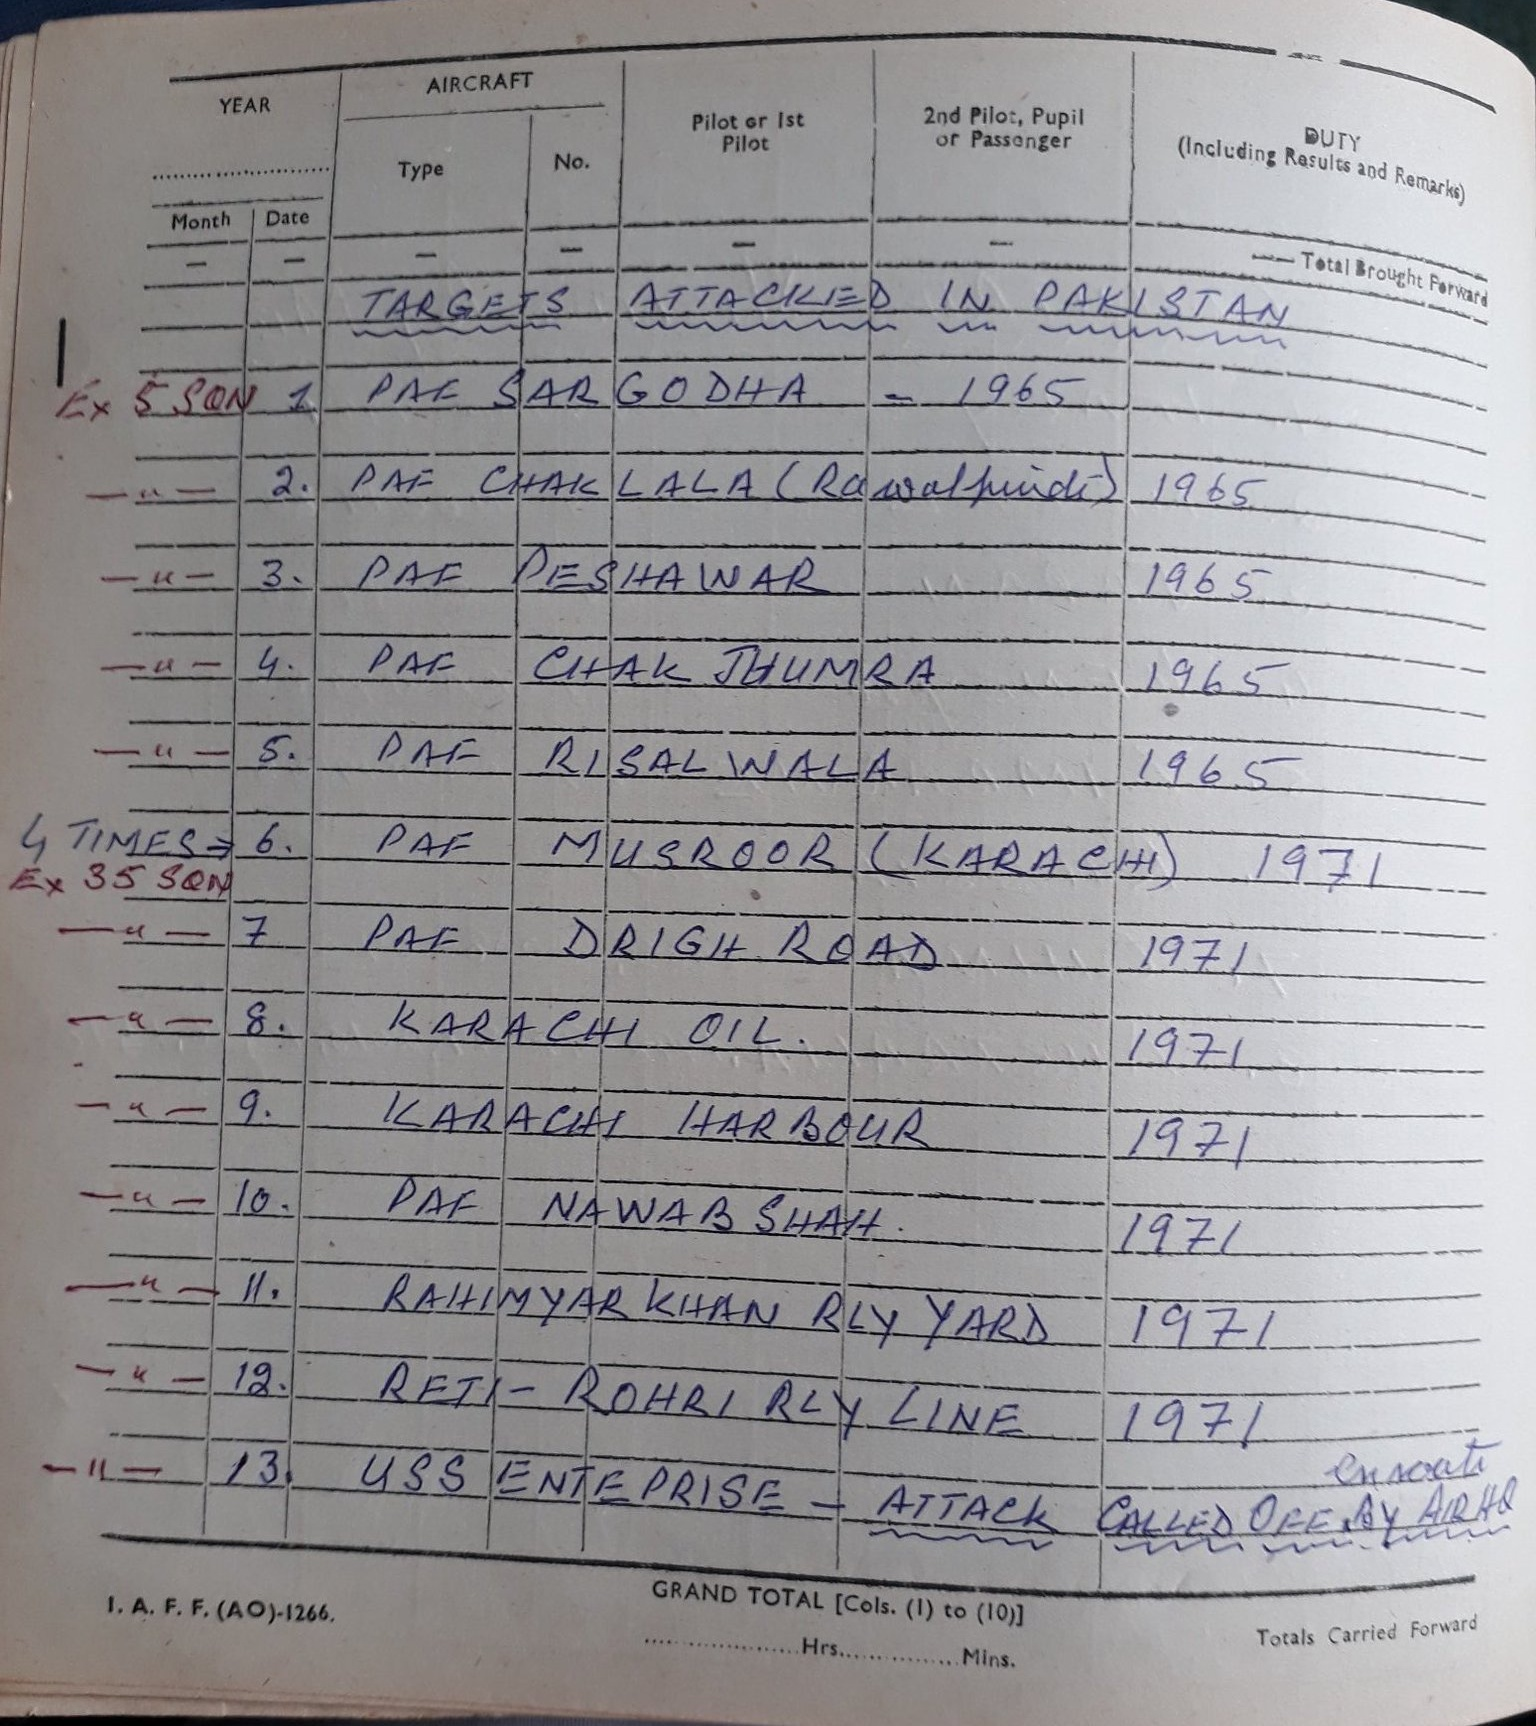 YEAR AIRCRAFT Pilot or 1st Pilot 2nd Pilot, Pupil or Passenger DUTY (Including Results and Remarks)
Type No.
Month Date
— — — — — — — Total Brought Forward
TARGETS ATTACKED IN PAKISTAN
Ex 5 SQN 1 PAF SARGODHA - 1965
—"— 2. PAF CHAKLALA (Rawalpindi) 1965
—"— 3. PAF PESHAWAR 1965
—"— 4. PAF CHAK JHUMRA 1965
—"— 5. PAF RISALWALA 1965
4 TIMES⇒ 6. PAF MUSROOR (KARACHI) 1971
Ex 35 SQN
—"— 7 PAF DRIGH ROAD 1971
—"— 8. KARACHI OIL. 1971
—"— 9. KARACHI HARBOUR 1971
—"— 10. PAF NAWABSHAH. 1971
—"— 11. RAHIMYARKHAN RLY YARD 1971
—"— 12. RETI - ROHRI RLY LINE 1971
enroute
—"— 13. USS ENTEPRISE - ATTACK CALLED OFF BY AIR HQ
I. A. F. F. (AO)-1266.
GRAND TOTAL [Cols. (1) to (10)]
....................Hrs................Mins.
Totals Carried Forward